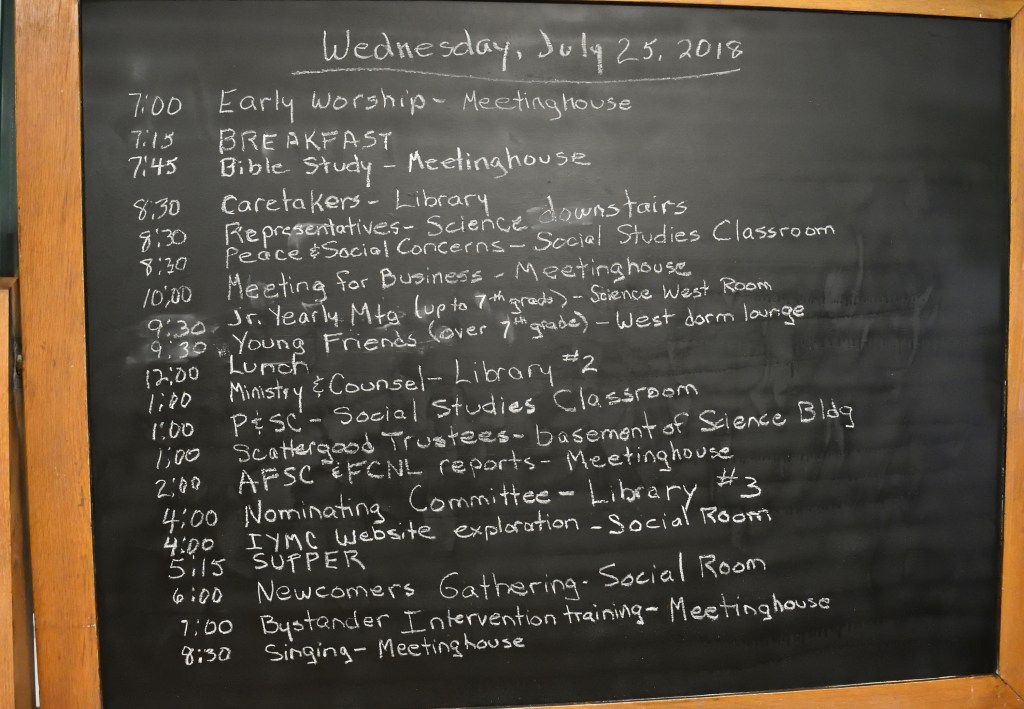 Wednesday, July 25, 2018
7:00 Early Worship - Meetinghouse
7:15 BREAKFAST
7:45 Bible Study - Meetinghouse
8:30 Caretakers - Library
8:30 Representatives - Science downstairs
8:30 Peace & Social Concerns - Social Studies Classroom
10:00 Meeting for Business - Meetinghouse
9:30 Jr. Yearly Mtg (up to 7th grade) - Science West Room
9:30 Young Friends (over 7th grade) - West dorm lounge
12:00 Lunch
1:00 Ministry & Counsel - Library #2
1:00 P&SC - Social Studies Classroom
1:00 Scattergood Trustees - basement of Science Bldg
2:00 AFSC & FCNL reports - Meetinghouse
4:00 Nominating Committee - Library #3
4:00 IYMC Website exploration - Social Room
5:15 SUPPER
6:00 Newcomers Gathering - Social Room
7:00 Bystander Intervention training - Meetinghouse
8:30 Singing - Meetinghouse